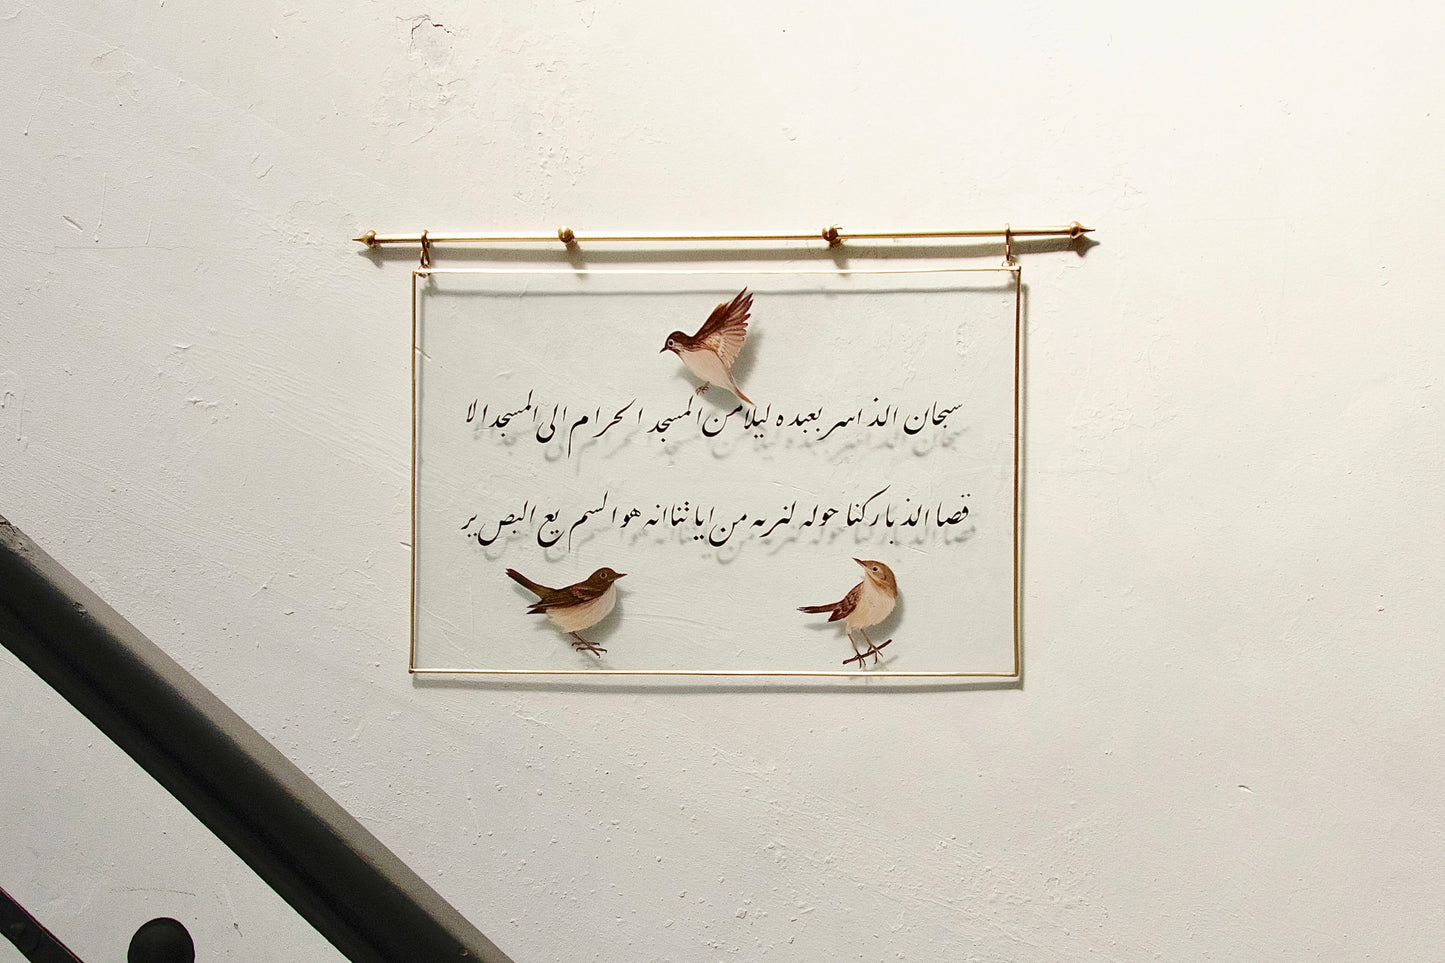 سبحان الذ اسر بعبده ليلا من المسجد الحرام الى المسجد الا
قصا الذ باركنا حوله لنريه من ايا تنا انه هو السم يع البص ير